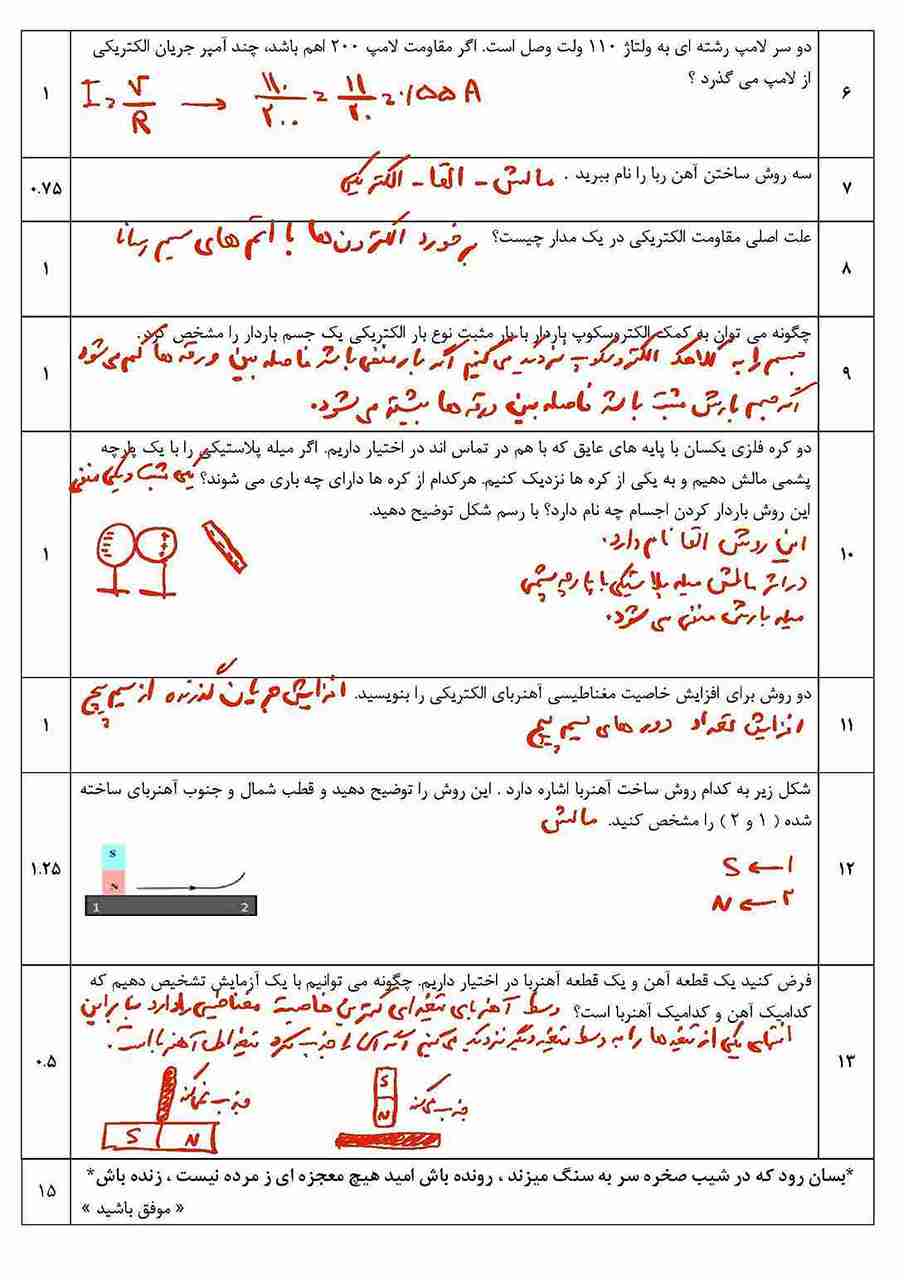 ۶
دو سر لامپ رشته ای به ولتاژ ۱۱۰ ولت وصل است. اگر مقاومت لامپ ۲۰۰ اهم باشد، چند آمپر جریان الکتریکی
از لامپ می گذرد ؟
I = V/R → ۱۱۰/۲۰۰ = ۱۱/۲۰ = ۰/۵۵ A
۱
۷
سه روش ساختن آهن ربا را نام ببرید . مالش - القا - الکتریکی
۰.۷۵
۸
علت اصلی مقاومت الکتریکی در یک مدار چیست؟ برخورد الکترون ها با اتم های سیم رسانا
۱
۹
چگونه می توان به کمک الکتروسکوپ باردار با بار مثبت نوع بار الکتریکی یک جسم باردار را مشخص کرد.
جسم را به کلاهک الکتروسکوپ نزدیک می کنیم اگر بار منفی باشد فاصله بین ورقه ها کم می شود
اگر جسم بارش مثبت باشد فاصله بین ورقه ها بیشتر می شود.
۱
۱۰
دو کره فلزی یکسان با پایه های عایق که با هم در تماس اند در اختیار داریم. اگر میله پلاستیکی را با یک پارچه
پشمی مالش دهیم و به یکی از کره ها نزدیک کنیم. هرکدام از کره ها دارای چه باری می شوند؟ یکی مثبت و یکی منفی
این روش باردار کردن اجسام چه نام دارد؟ با رسم شکل توضیح دهید.
این روش القا نام دارد.
در اثر مالش میله پلاستیکی با پارچه پشمی
میله بارش منفی می شود.
۱
۱۱
دو روش برای افزایش خاصیت مغناطیسی آهنربای الکتریکی را بنویسید. افزایش جریان گذرنده از سیم پیچ
افزایش تعداد دور های سیم پیچ
۱
۱۲
شکل زیر به کدام روش ساخت آهنربا اشاره دارد . این روش را توضیح دهید و قطب شمال و جنوب آهنربای ساخته
شده ( ۱ و ۲ ) را مشخص کنید. مالش
۱ → S
۲ → N
S
N
1 2
۱.۲۵
۱۳
فرض کنید یک قطعه آهن و یک قطعه آهنربا در اختیار داریم. چگونه می توانیم با یک آزمایش تشخیص دهیم که
کدامیک آهن و کدامیک آهنربا است؟ وسط آهنربای تیغه ای کمترین خاصیت مغناطیسی را دارد بنابراین
انتهای یکی از تیغه ها را به وسط تیغه دیگر نزدیک می کنیم اگر آن را جذب کرد تیغه اول آهنربا است.
S
N
جذب می کند
جذب نمی کند
S N
۰.۵
*بسان رود که در شیب صخره سر به سنگ میزند ، رونده باش امید هیچ معجزه ای ز مرده نیست ، زنده باش*
« موفق باشید »
۱۵